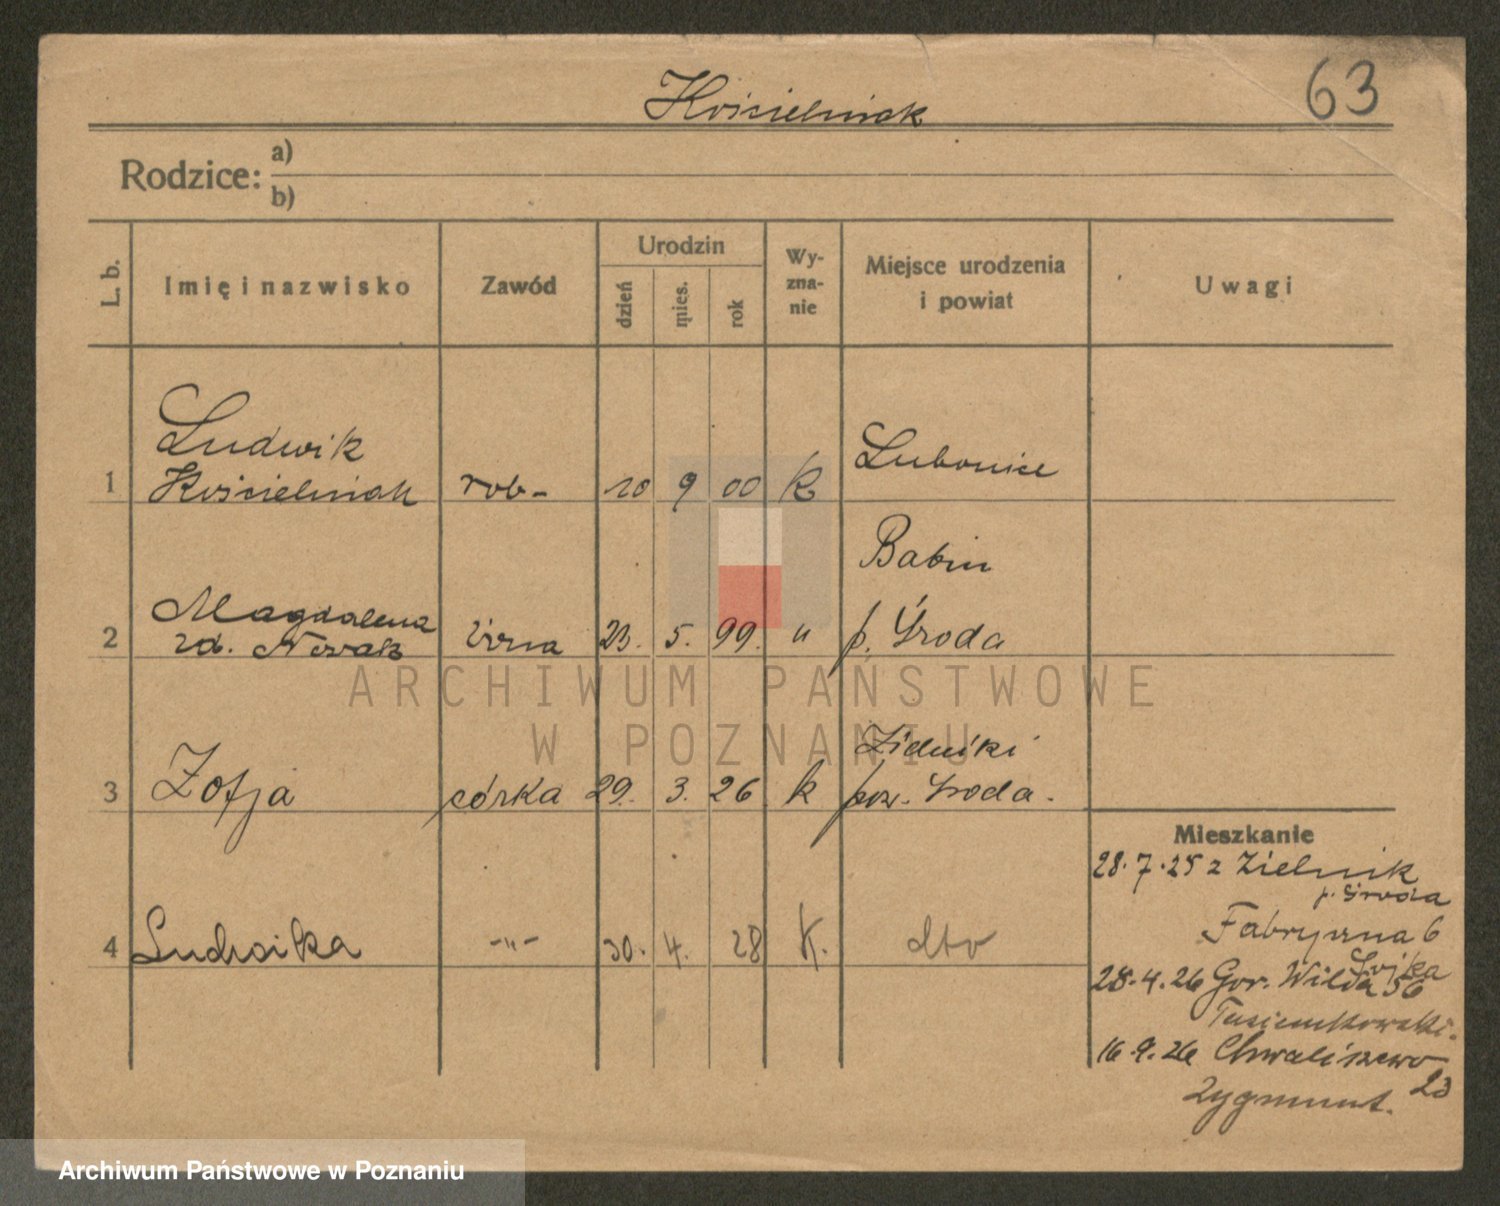 63
Kościelniak
Rodzice: a)
b)
L. b.
Imię i nazwisko
Zawód
Urodzin
dzień
mies.
rok
Wy-
zna-
nie
Miejsce urodzenia
i powiat
Uwagi
1 Ludwik
Kościelniak rob- 10 9 00 k Lubonice
2 Magdalena
zd. Nowak żona 23. 5. 99. " Babin
p. Środa
3 Zofja córka 29. 3. 26 k Zielniki
pow. Środa.
4 Ludwika -"- 30. 4. 28 K. dto
Mieszkanie
28.7.25 z Zielnik
p. Środa
Fabryczna 6
28.4.26 Gor. Wilda 56
16.9.26 Chwaliszewo
23
Zygmunt.
ARCHIWUM PAŃSTWOWE
W POZNANIU
Archiwum Państwowe w Poznaniu